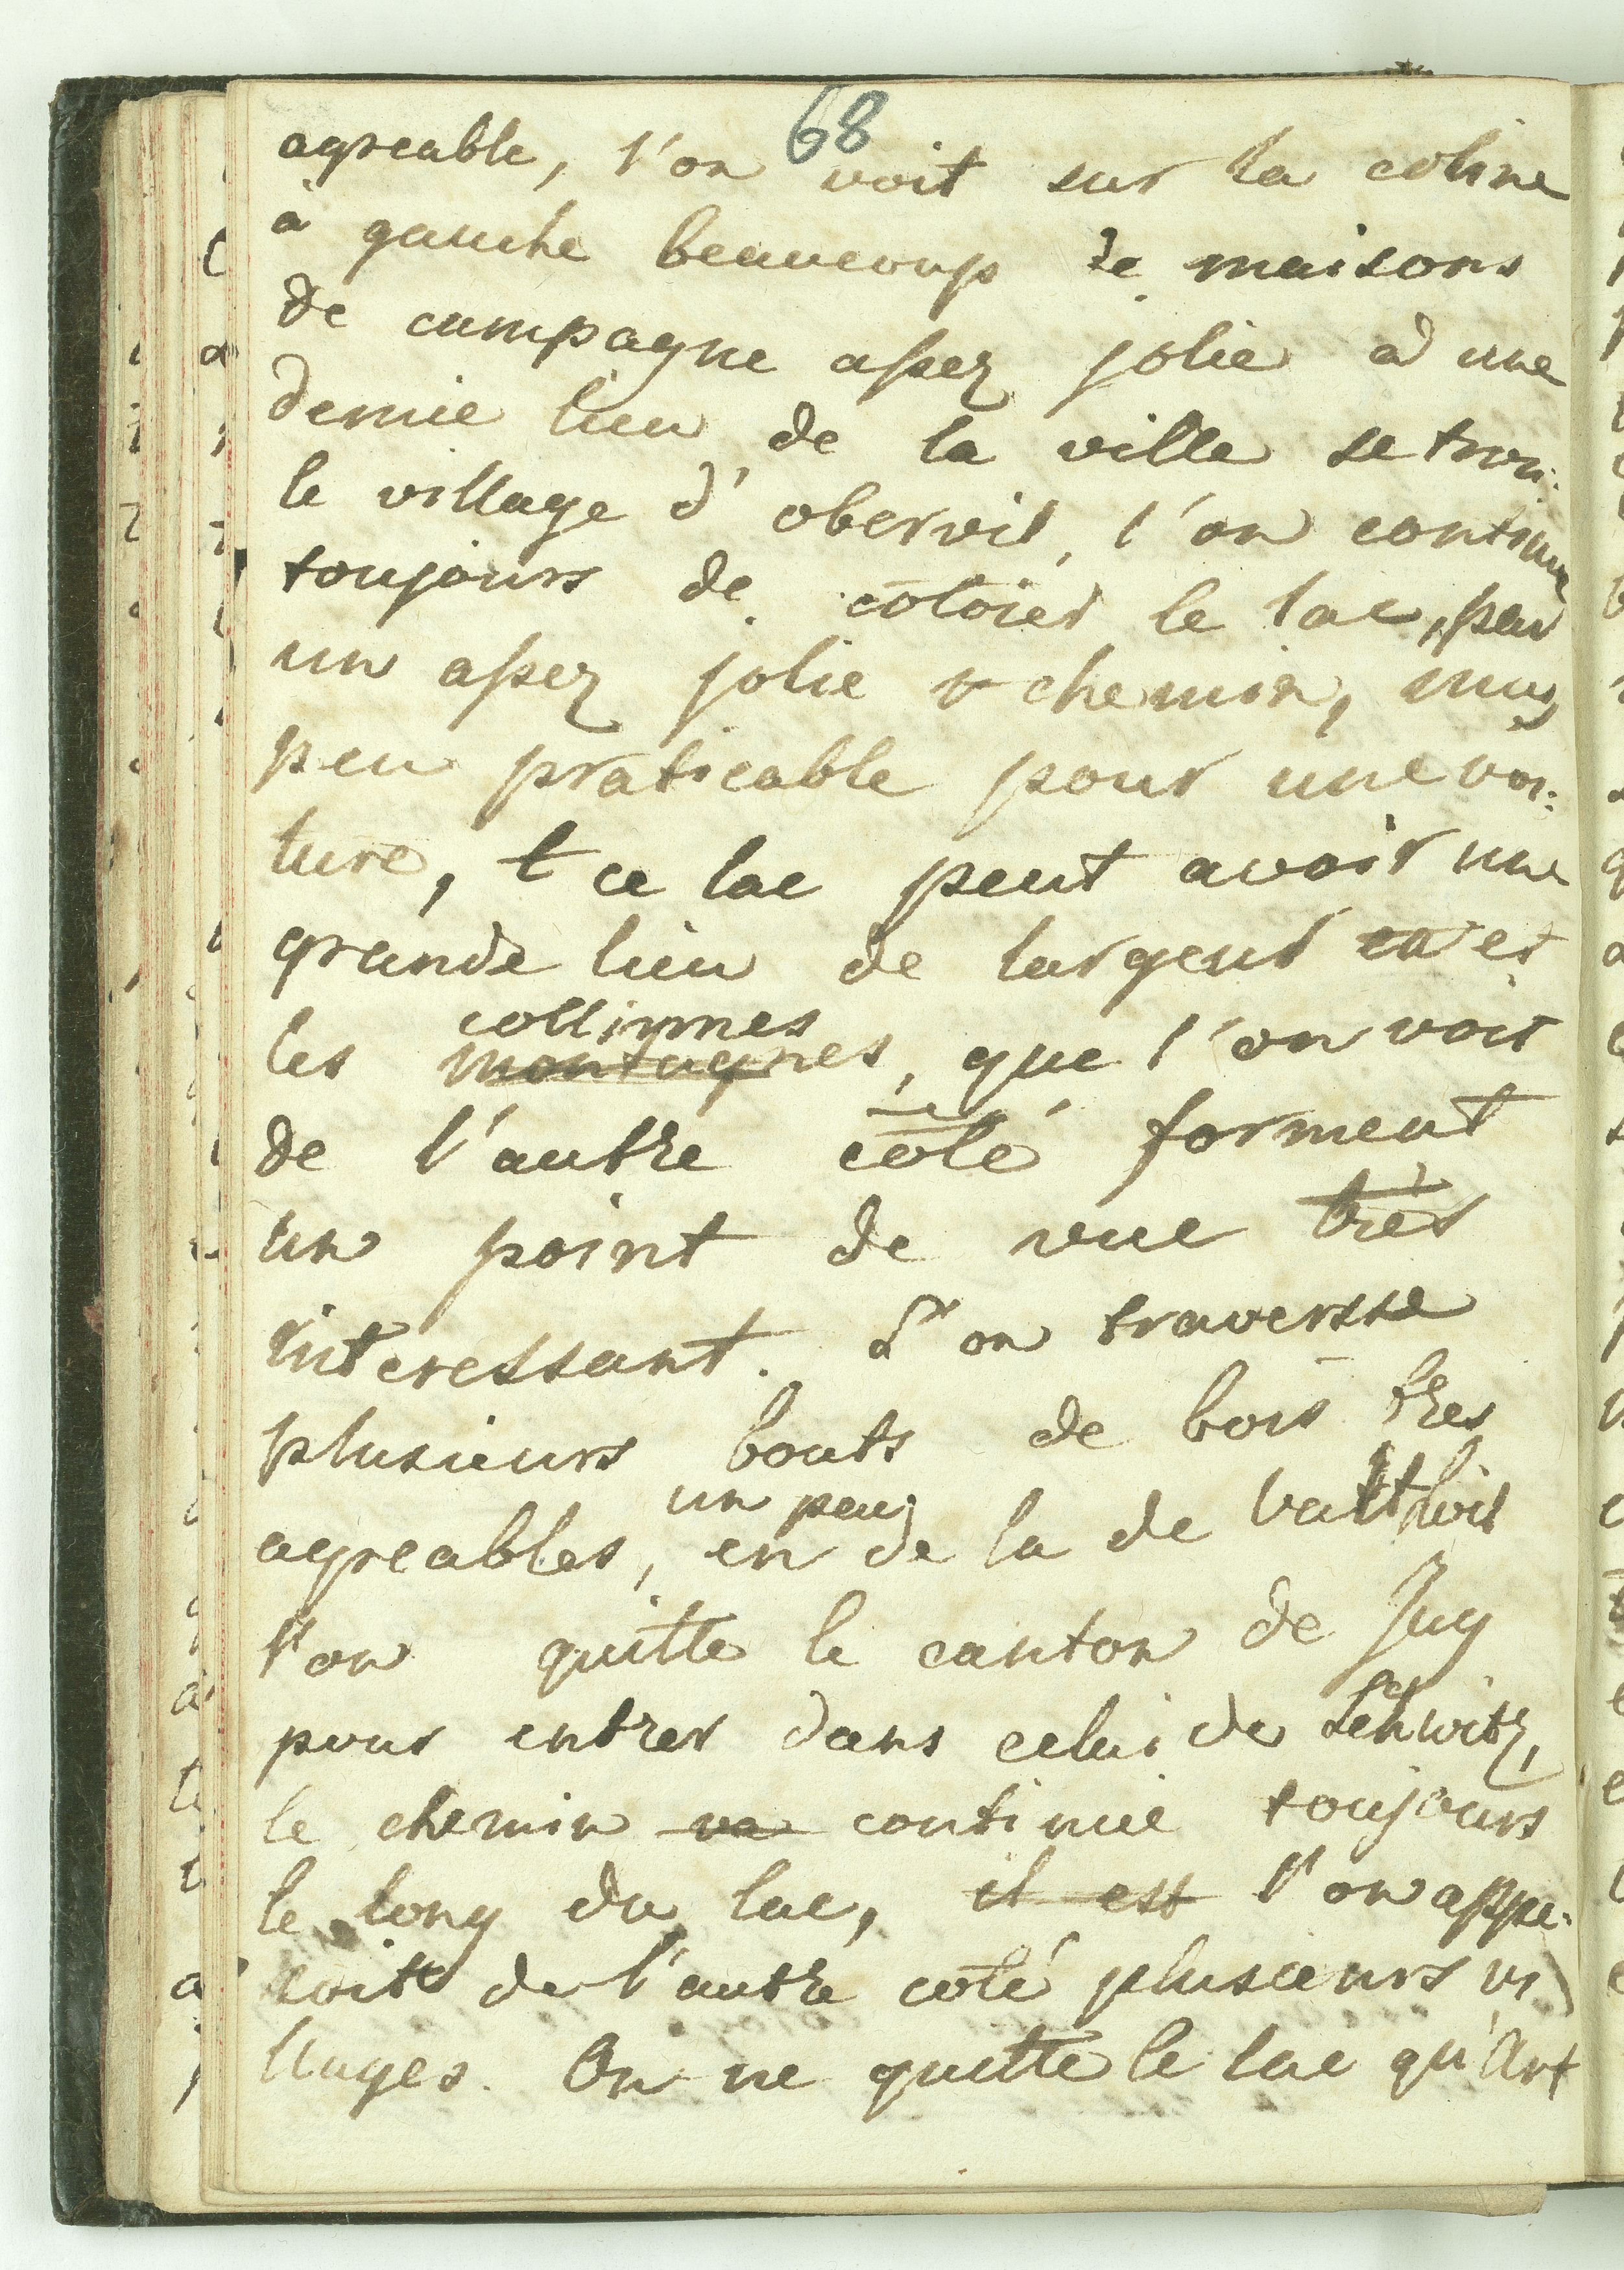 68
agreable, l'on voit sur la coline
à gauche beaucoup de maisons
de campagne assez jolie à une
demie lieu de la ville se trou:
le village d'obervil, l'on continue
toujours de cotoier le lac, par
un assez jolie chemin, mais
peu praticable pour une voi:
ture, ce lac peut avoir une
grande lieu de largeur et
collinnes
les montagnes, que l'on voit
de l'autre coté forment
un point de vue très
interessant. L'on traversse
plusieurs bouts de bois tres
un peu
agreables, en de la de
l'on quitte le canton de Zug
pour entrer dans celui de Schwitz,
le chemin va continue toujours
le long du lac, il est l'on appe:
coit de l'autre coté plusieurs vi
llages. On ne quitte le lac qu'Art